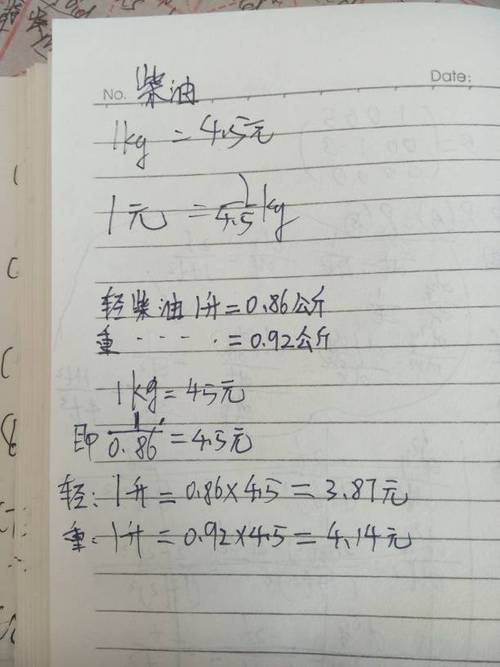 No. 柴油
Date:
1kg = 4.5元
1元 = 1/4.5 kg
轻柴油1升=0.86公斤
重 · · · · =0.92公斤
1kg=4.5元
即 1/0.86 =4.5元
轻:1升=0.86×4.5=3.87元
重:1升=0.92×4.5=4.14元